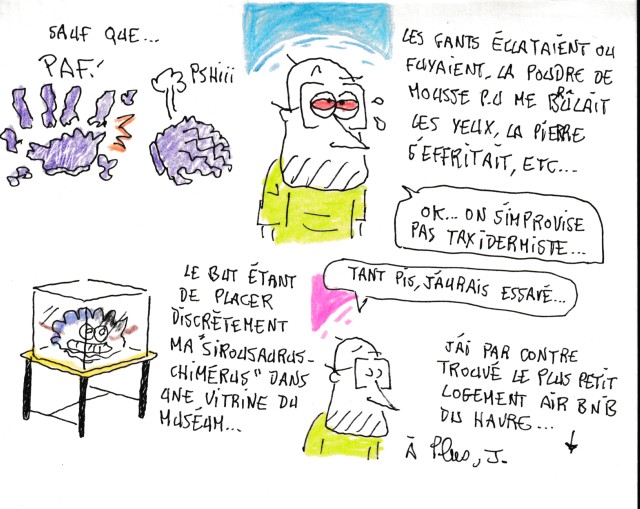 SAUF QUE...
PAF!
PSHIII
LES GANTS ÉCLATAIENT OU
FUYAIENT, LA POUDRE DE
MOUSSE P.U ME BRÛLAIT
LES YEUX, LA PIERRE
S'EFFRITAIT, ETC...
OK... ON S'IMPROVISE
PAS TAXIDERMISTE...
LE BUT ÉTANT
DE PLACER
DISCRÈTEMENT
MA "SIROUSAURUS-
CHIMÉRUS" DANS
UNE VITRINE DU
MUSÉUM...
TANT PIS, J'AURAIS ESSAYÉ...
J'AI PAR CONTRE
TROUVÉ LE PLUS PETIT
LOGEMENT AIR BNB
DU HAVRE...
À Plus, J.